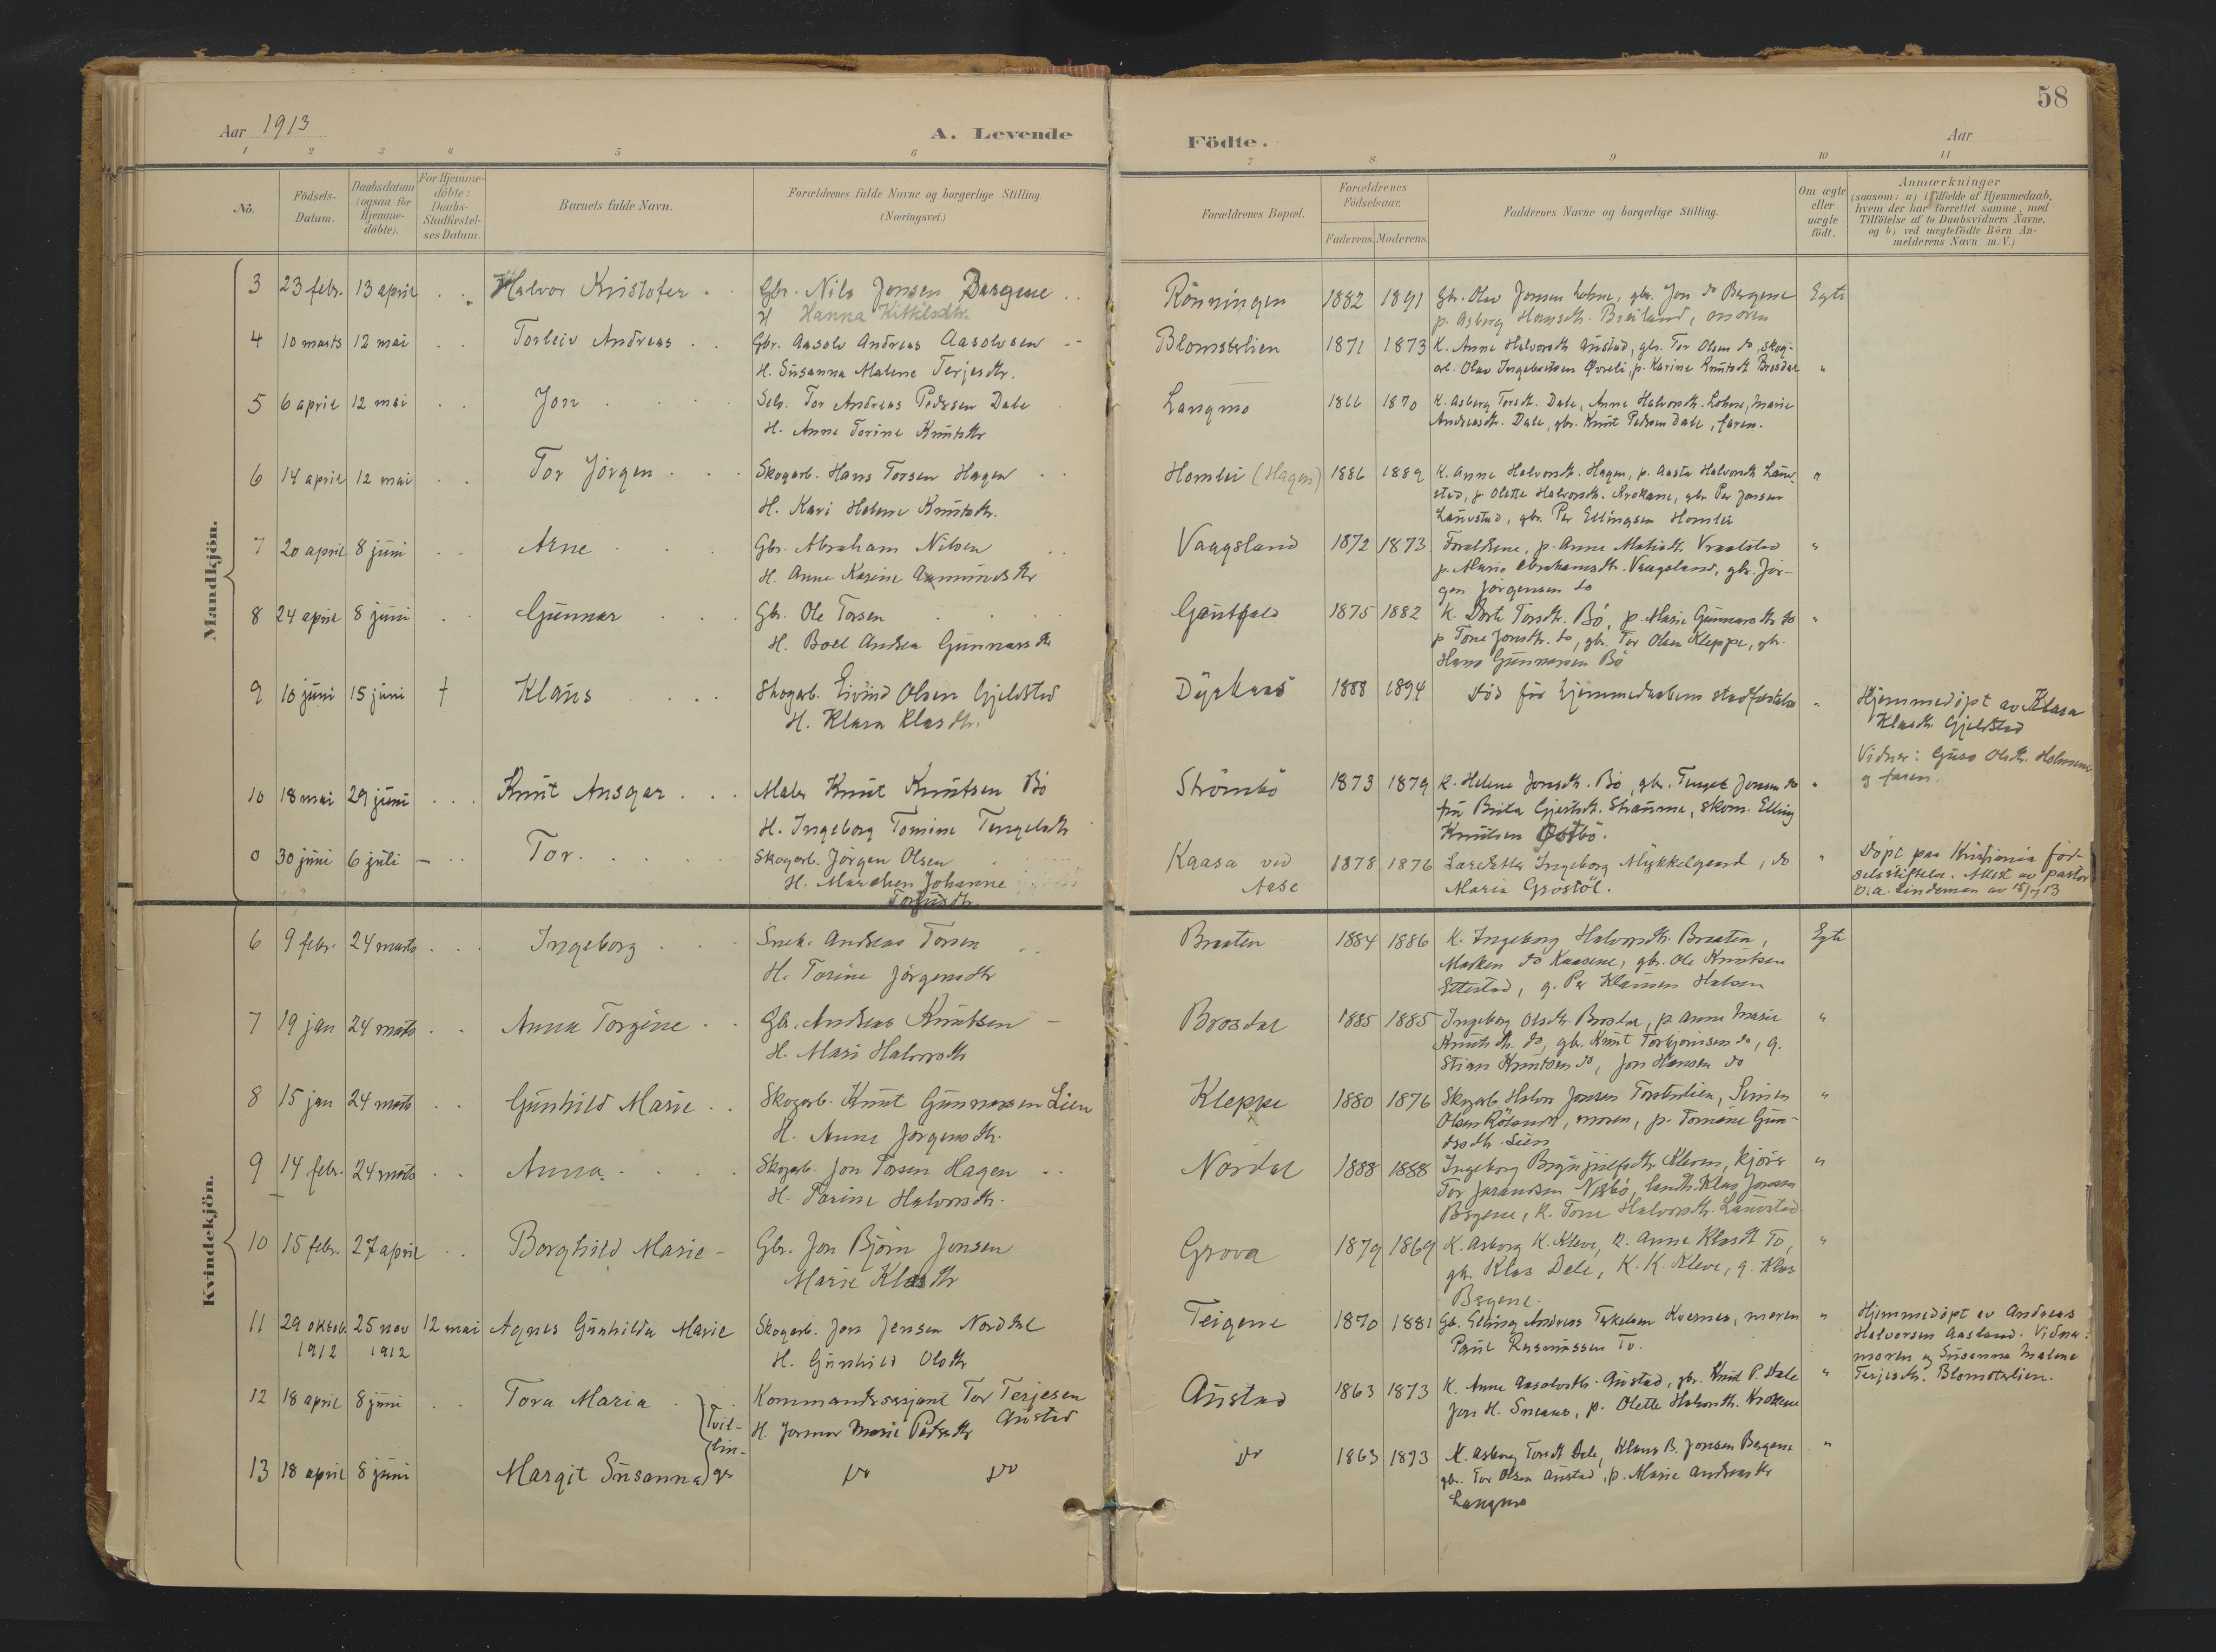 58
Aar 1913
A. Levende
Födte.
Aar
1 2 3 4 5 6 7 8 9 10 11
No.
Födsels-
Datum.
Daabsdatum
(ogsaa for
Hjemme-
döbte).
For Hjemme-
döbte:
Daabs-
Stadfæstel-
ses Datum.
Barnets fulde Navn.
Forældrenes fulde Navne og borgerlige Stilling.
(Næringsvei.)
Forældrenes Bopæl.
Forældrenes
Födselsaar.
Faderens. Moderens.
Faddernes Navne og borgerlige Stilling.
Om ægte
eller
uægte
födt.
Anmærkninger
(saasom: a) i Tilfælde af Hjemmedaab,
hvem der har forrettet samme, med
Tilföielse af to Daabsvidners Navne,
og b) ved uægtefödte Börn An-
melderens Navn m. V.)
Mandkjön.
3 23 febr. 13 april Halvor Kristofer Gbr. Nils Jonsen Bergene Rönningen 1882 1891 gbr. Olav Jonsen Lohne, gbr. Jon do Bergene Egte
H Hanna Kitilsdtr. p. Asberg Hansdtr. Breiland, moren
4 10 marts 12 mai Torleiv Andreas Gbr. Aasolv Andreas Aasolvsen Blomsterlien 1871 1873 K. Anne Halvorsdtr Austad, gbr. Tor Olsen do, skog-
H. Susanna Malene Terjesdtr. arb. Olav Ingebretsen Övreli, p. Karine Knutsdt Brosdal "
5 6 april 12 mai Jon Selv. Tor Andreas Pedersen Dale Langmo 1866 1870 K. Asberg Torsdtr. Dale, Anne Halvorsdtr. Lohne, Marie
H. Anne Torine Knutsdtr Andreasdtr. Dale, gbr. Knut Pedersen Dale, faren.
6 14 april 12 mai Tor Jörgen Skogarb. Hans Torsen Hagen Homlei (Hagen) 1886 1889 K. Anne Halvorsdt. Hagen, p. Aasta Halvorsdtr Lauv- "
H. Kari Helene Knutsdtr. stad, p. Olette Halvorsdtr. Krokane, gbr. Per Jonsen
Lauvstad, gbr. Per Ellingsen Homlei
7 20 april 8 juni Arne Gbr. Abraham Nilsen Vaagsland 1872 1873 Foreldrene, p. Anne Vraalstad "
H. Anne Karine Aamundsdtr p. Marie Abrahamsdtr. Vaagsland, gbr. Jör-
gen Jörgensen do
8 24 april 8 juni Gunnar Gbr. Ole Torsen 1875 1882 K. Dorte Torsdtr. Bö, p. Marie Gunnarsdtr do "
H. Boel Andrea Gunnarsdtr p Tone Jonsdtr. do, gbr. Tor Olsen Kleppe, gbr.
Hans Gunnarsen Bö
9 10 juni 15 juni † Klaus Skogarb. Eivind Olsen Gjeldstad 1888 1894 död för hjemmedaabens stadfæstelse " Hjemmedöpt av Klara
H. Klara Klasdtr. Klasdtr. Gjeldstad
Vidner: Olsdtr. Holmene
og faren.
10 18 mai 29 juni Knut Ansgar Maler Knut Knutsen Bö Strömbö 1873 1879 K. Helene Jonsdtr. Bö, gbr. Tengel Jonsen do "
H. Ingeborg Tomine Tengelsdtr fru Brita Gjertsdt. Straume, skom. Elling
Knutsen Östbö.
0 30 juni 6 juli — Tor Skogarb. Jörgen Olsen Kaasa ved 1878 1876 Ingeborg Myklegaard, do " Döpt paa Kristiania föd-
H. Marchen Johanne Aase Maria Grostöl. selsstiftelse. Attest av pastor
Torjusdtr. O.A. Lindeman av 15/7 13
Kvindekjön.
6 9 febr. 24 marts Ingeborg Snek. Andreas Torsen Braaten 1884 1886 K. Ingeborg Halvorsdtr. Braaten, Egte
H. Torine Jörgensdtr Marken do Kaasene, gbr. Ole Knutsen
Ettestad, g. Per Klausen Halsen
7 19 jan 24 marts Anna Torgine Gbr. Andreas Knutsen Brosdal 1885 1885 Ingeborg Olsdtr. Brosdal, p. Anne Marie "
H. Mari Halvorsdtr Knutsdtr. do, gbr. Knut Torbjörnsen do, g.
Stian Knutsen do, Jon Hansen do
8 15 jan 24 marts Gunhild Marie Skogarb. Knut Gunnarsen Lien Kleppe 1880 1876 Skogarb Halvor Jonsen Torsterlien, Simen "
H. Anne Jörgensdtr. Olsen, moren, p. Tomine Gun-
dtr. Lien
9 14 febr. 24 marts Anna Skogarb. Jon Torsen Hagen Nordal 1888 1888 Ingeborg Brynjulfsdtr. Kleven, "
H. Torine Halvorsdtr. Tor Nesbö, Klas Jonsen
Bergene, K. Tone Halvorsdtr. Lauvstad
10 15 febr. 27 april Borghild Marie Gbr. Jon Björn Jonsen Grova 1879 1869 K. Asborg K. Kleve, K. Anne Klasdt To, "
Marie Klasdtr gb. Klas Dale, K. K. Kleve, g. Klas
Bergene.
11 29 oktob. 25 nov 12 mai Agnes Gunhilda Marie Skogarb. Jon Jensen Nordal Teigene 1870 1881 Gb. Elling Andreas Terkelsen Kvernes, moren " Hjemmedöpt av Andreas
1912 1912 H. Gunhild Olsdtr Paul Rasmussen To. Halvorsen Aasland. Vidner:
moren og Susanna Malene
Terjesdtr. Blomsterlien.
12 18 april 8 juni Tora Maria Kommandersersjant Tor Terjesen Austad 1863 1873 K. Anne Aasolvsdtr. Austad, gbr. Knut P. Dale "
H. Marie Pedersdtr Austad Jon H. Sneaas, p. Olette Halvorsdtr. Krokene
Tvil-
lin-
ger
13 18 april 8 juni Margit Susanna do do do 1863 1873 K. Asberg Torsdt Dale, Klaus B. Jonsen Bergene "
gbr. Tor Olsen Austad, p. Marie Andreasdtr
Langmo